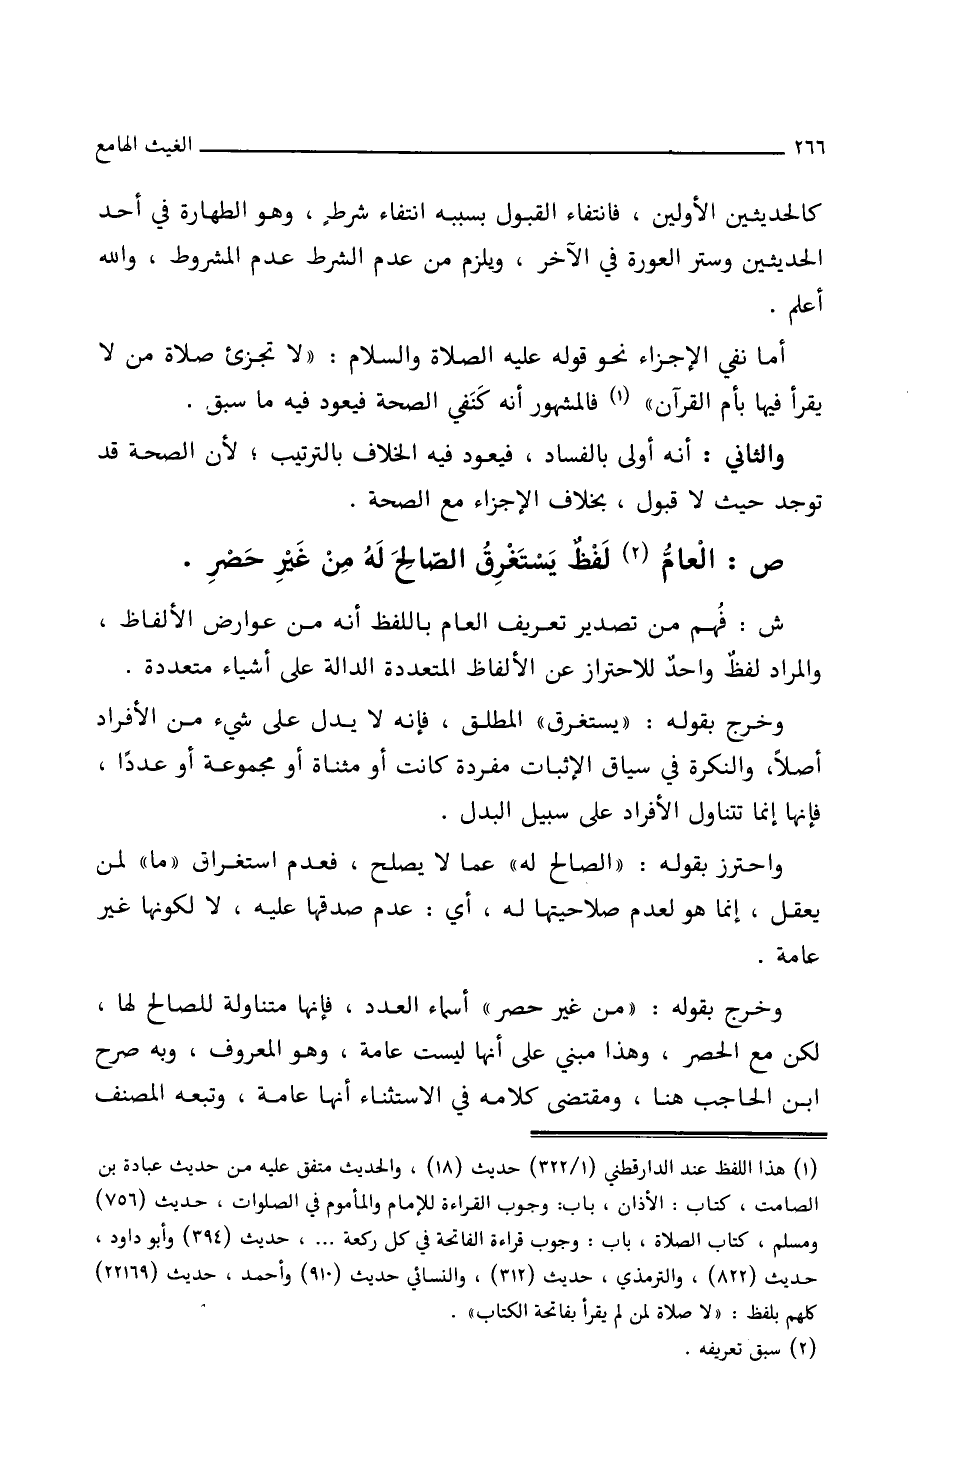 ٢٦٦ ــــــــــــــــــــــــــــــــــــــــ الغيث الهامع
كالحديثين الأولين ، فانتفاء القبول بسببه انتفاء شرطٍ ، وهو الطهارة في أحد
الحديثين وستر العورة في الآخر ، ويلزم من عدم الشرط عدم المشروط ، والله
أعلم .
أما نفي الإجزاء نحو قوله عليه الصلاة والسلام : «لا تجزئ صلاة من لا
يقرأ فيها بأم القرآن» (١) فالمشهور أنه كَنَفي الصحة فيعود فيه ما سبق .
والثاني : أنه أولى بالفساد ، فيعود فيه الخلاف بالترتيب ؛ لأن الصحة قد
توجد حيث لا قبول ، بخلاف الإجزاء مع الصحة .
ص : الْعامُّ (٢) لَفْظٌ يَسْتَغْرِقُ الصّالِحَ لَهُ مِنْ غَيْرِ حَصْرٍ .
ش : فُهم من تصدير تعريف العام باللفظ أنه من عوارض الألفاظ ،
والمراد لفظٌ واحدٌ للاحتراز عن الألفاظ المتعددة الدالة على أشياء متعددة .
وخرج بقوله : «يستغرق» المطلق ، فإنه لا يدل على شيء من الأفراد
أصلاً، والنكرة في سياق الإثبات مفردة كانت أو مثناة أو مجموعة أو عددًا ،
فإنها إنما تتناول الأفراد على سبيل البدل .
واحترز بقوله : «الصالح له» عما لا يصلح ، فعدم استغراق «ما» لمن
يعقل ، إنما هو لعدم صلاحيتها له ، أي : عدم صدقها عليه ، لا لكونها غير
عامة .
وخرج بقوله : «من غير حصر» أسماء العدد ، فإنها متناولة للصالح لها ،
لكن مع الحصر ، وهذا مبني على أنها ليست عامة ، وهو المعروف ، وبه صرح
ابن الحاجب هنا ، ومقتضى كلامه في الاستثناء أنها عامة ، وتبعه المصنف
(١) هذا اللفظ عند الدارقطني (٣٢٢/١) حديث (١٨) ، والحديث متفق عليه من حديث عبادة بن
الصامت ، كتاب : الأذان ، باب: وجوب القراءة للإمام والمأموم في الصلوات ، حديث (٧٥٦)
ومسلم ، كتاب الصلاة ، باب : وجوب قراءة الفاتحة في كل ركعة ... ، حديث (٣٩٤) وأبو داود ،
حديث (٨٢٢) ، والترمذي ، حديث (٣١٢) ، والنسائي حديث (٩١٠) وأحمد ، حديث (٢٢١٦٩)
كلهم بلفظ : «لا صلاة لمن لم يقرأ بفاتحة الكتاب» .
(٢) سبق تعريفه .